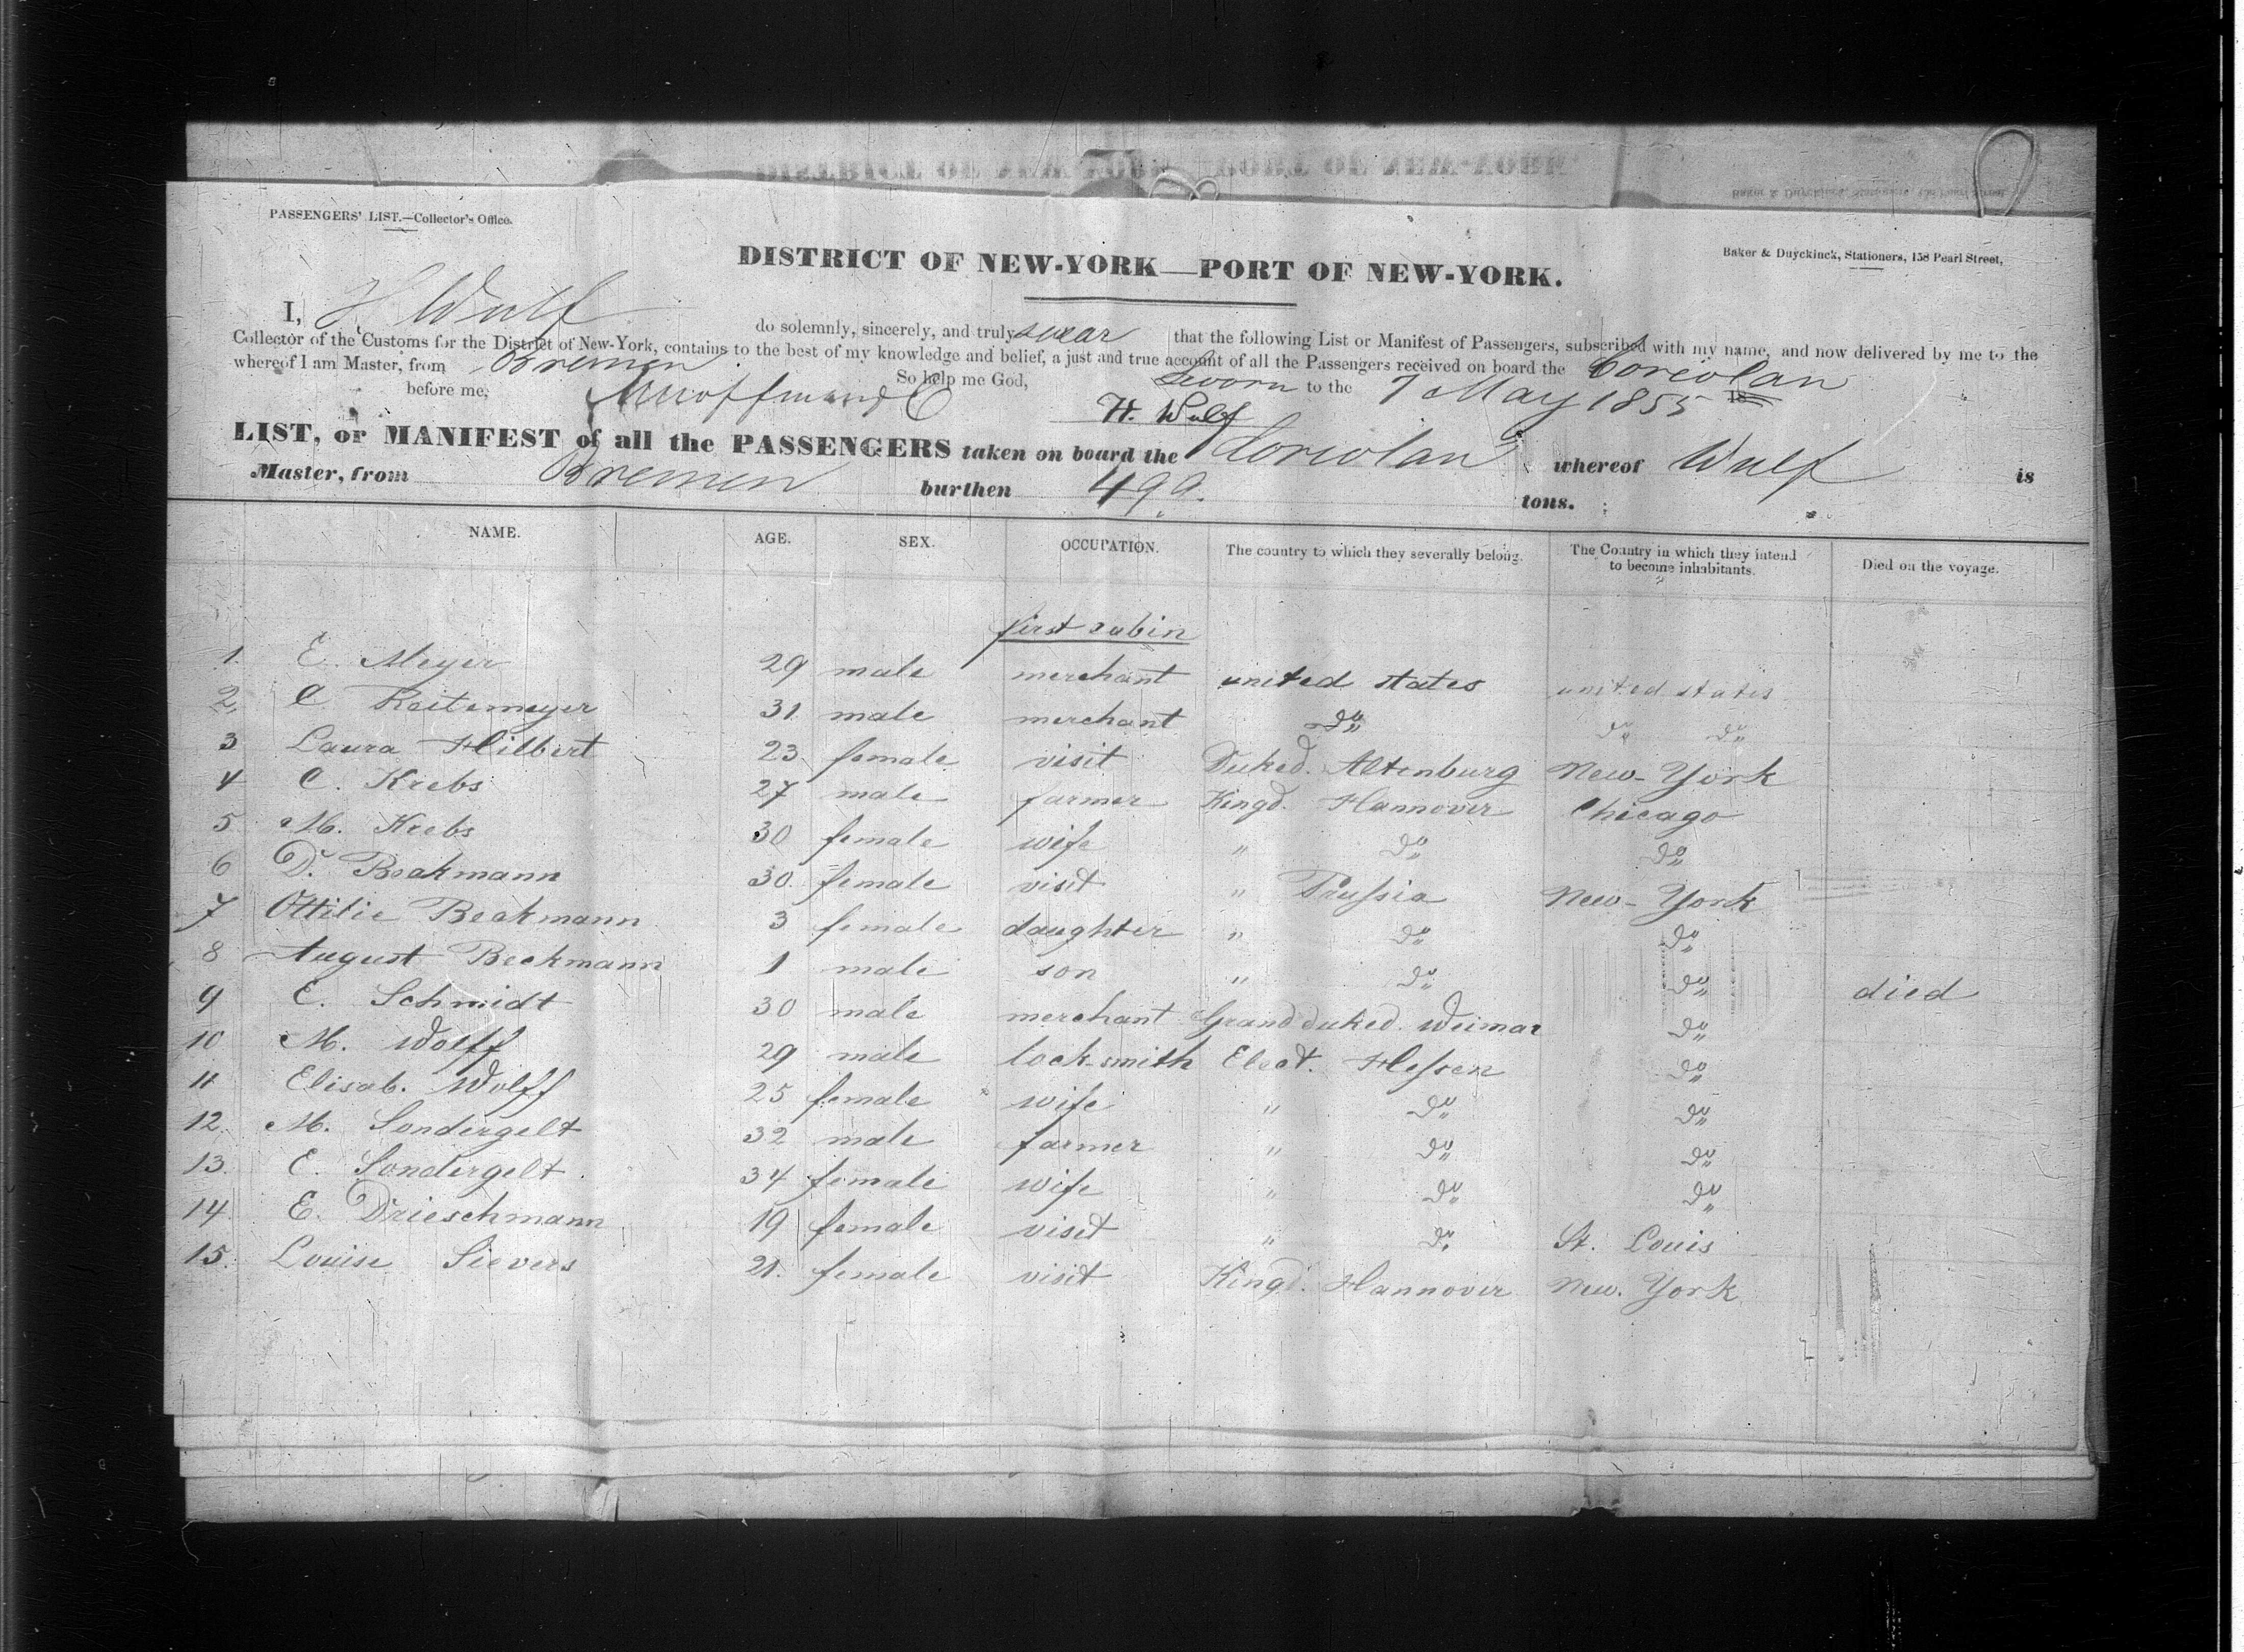 PASSENGERS' LIST.—Collector's Office.
Baker & Duyckinck, Stationers, 158 Pearl Street,
DISTRICT OF NEW-YORK—PORT OF NEW-YORK.
I, H Wulf do solemnly, sincerely, and truly swear that the following List or Manifest of Passengers, subscribed with my name, and now delivered by me to the
Collector of the Customs for the District of New-York, contains to the best of my knowledge and belief, a just and true account of all the Passengers received on board the Coriolan
whereof I am Master, from Bremen So help me God,
Sworn to the 7 May 1855 18
before me,
H. Wulf
LIST, or MANIFEST of all the PASSENGERS taken on board the Coriolan whereof Wulf is
Master, from Bremen burthen 499. tons.
NAME. AGE. SEX. OCCUPATION. The country to which they severally belong. The Country in which they intend to become inhabitants. Died on the voyage.
first cabin
1. E. Meyer 29 male merchant united states united states
2. C Reitemeyer 31 male merchant do do do
3 Laura Hilbert 23 female visit Duked. Altenburg New-York
4 C. Krebs 27 male farmer Kingd. Hannover Chicago
5 M. Krebs 30 female wife " do do
6 D. Beckmann 30. female visit " Prussia New-York
7 Ottilie Beckmann 3 female daughter " do do
8 August Beckmann 1 male son " do do died
9 C. Schmidt 30 male merchant Grand duked. Weimar do
10 M. Wolff 29 male lock-smith Elect. Hessen do
11 Elisab. Wolff 25 female wife " do do
12. M. Sondergelt 32 male farmer " do do
13. C. Sondergelt 34 female wife " do do
14. E. Drieschmann 19 female visit " do St. Louis
15. Louise Sievers 21. female visit Kingd. Hannover New. York